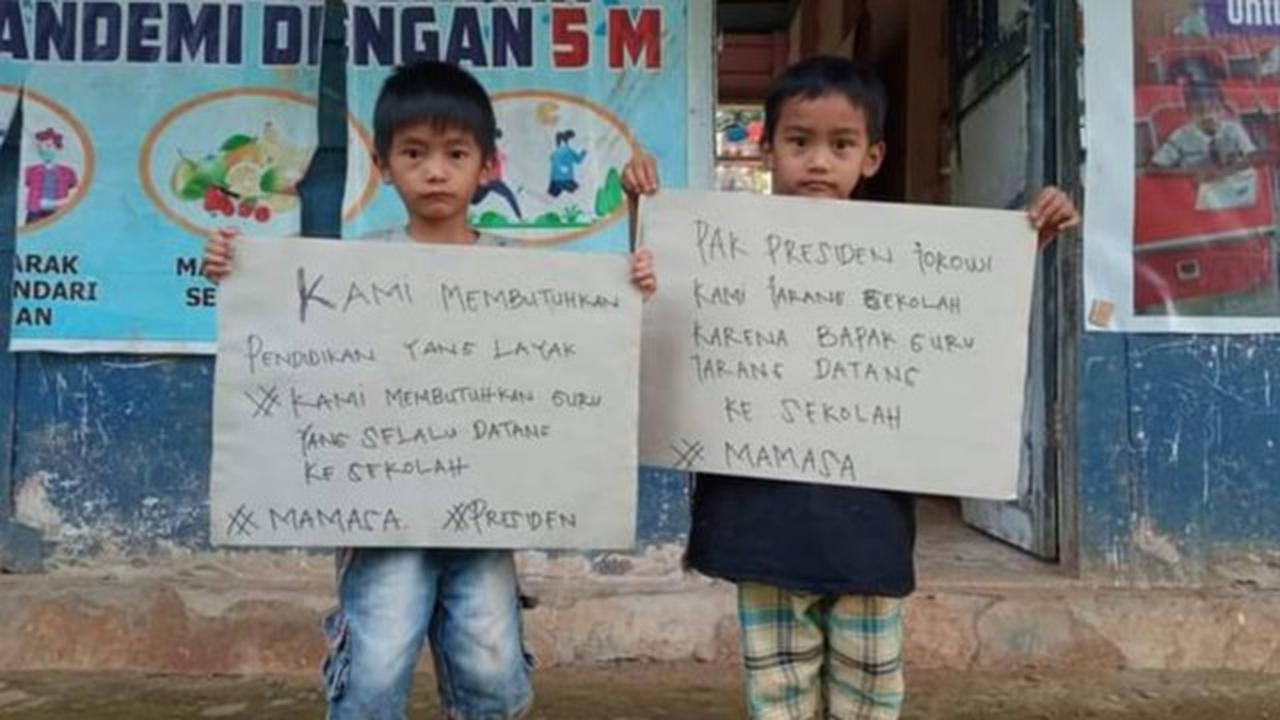 ANDEMI DENGAN 5 M
ARAK
NDARI
AN
MA
SE
KAMI MEMBUTUHKAN
PENDIDIKAN YANG LAYAK
# KAMI MEMBUTUHKAN GURU
YANG SELALU DATANG
KE SEKOLAH
# MAMASA # PRESIDEN
PAK PRESIDEN JOKOWI
KAMI JARANG SEKOLAH
KARENA BAPAK GURU
JARANG DATANG
KE SEKOLAH
# MAMASA